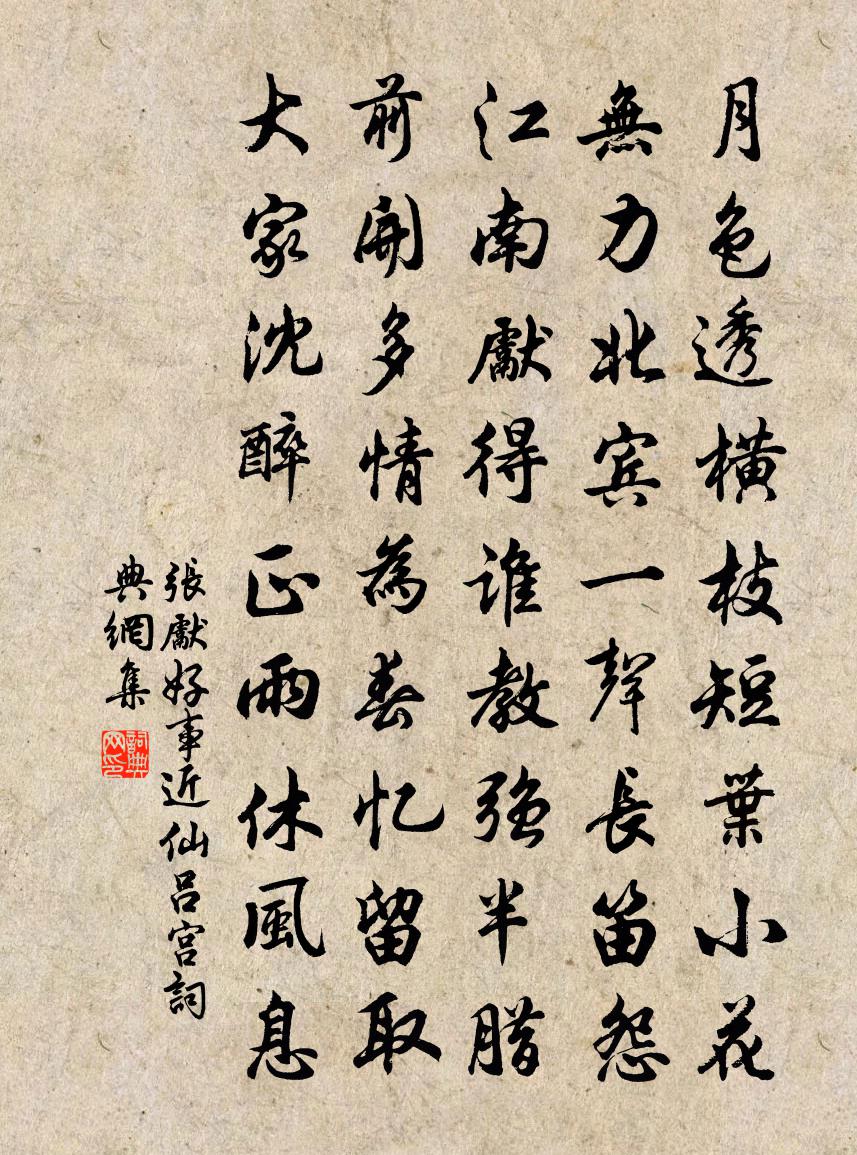 月色透橫枝短葉小花
無力北賓一聲長笛怨
江南獻得誰教強半腊
前開多情為春忆留取
大家沈醉正雨休風息
張獻好事近仙呂宮詞
典網集
詞典网印